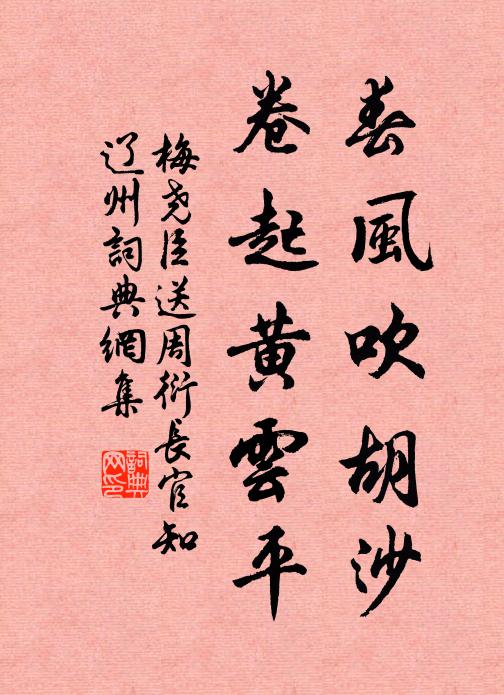 春風吹胡沙
卷起黄雲平
梅堯臣送周衍長官知
辽州詞典網集
詞典网印